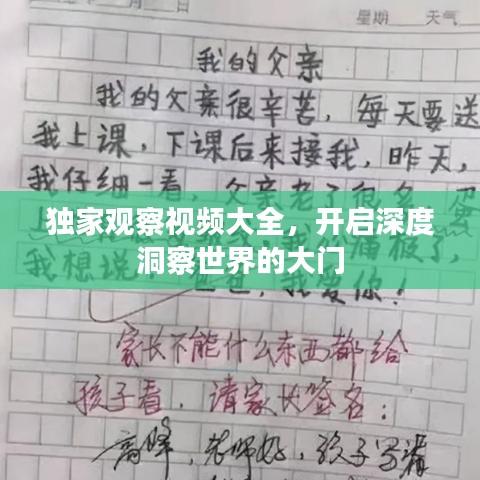 星期 天气
我的父亲
我的父亲很辛苦，每天要送
我上课，下课后来接我，昨天，
我仔细一看，父亲老了很多
独家观察视频大全，开启深度
洞察世界的大门
我想说
爸爸，我爱你！
家长不能什么东西都给
孩子看，请家长签名：
高峰，老师好，孩子写清